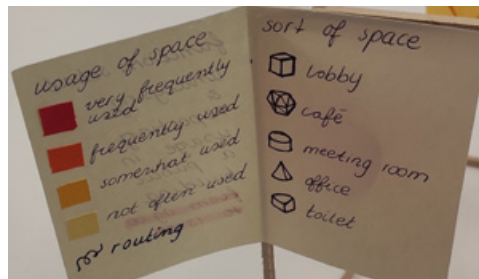 usage of space
very frequently
used
frequently used
somewhat used
not often used
routing
sort of space
lobby
café
meeting room
office
toilet